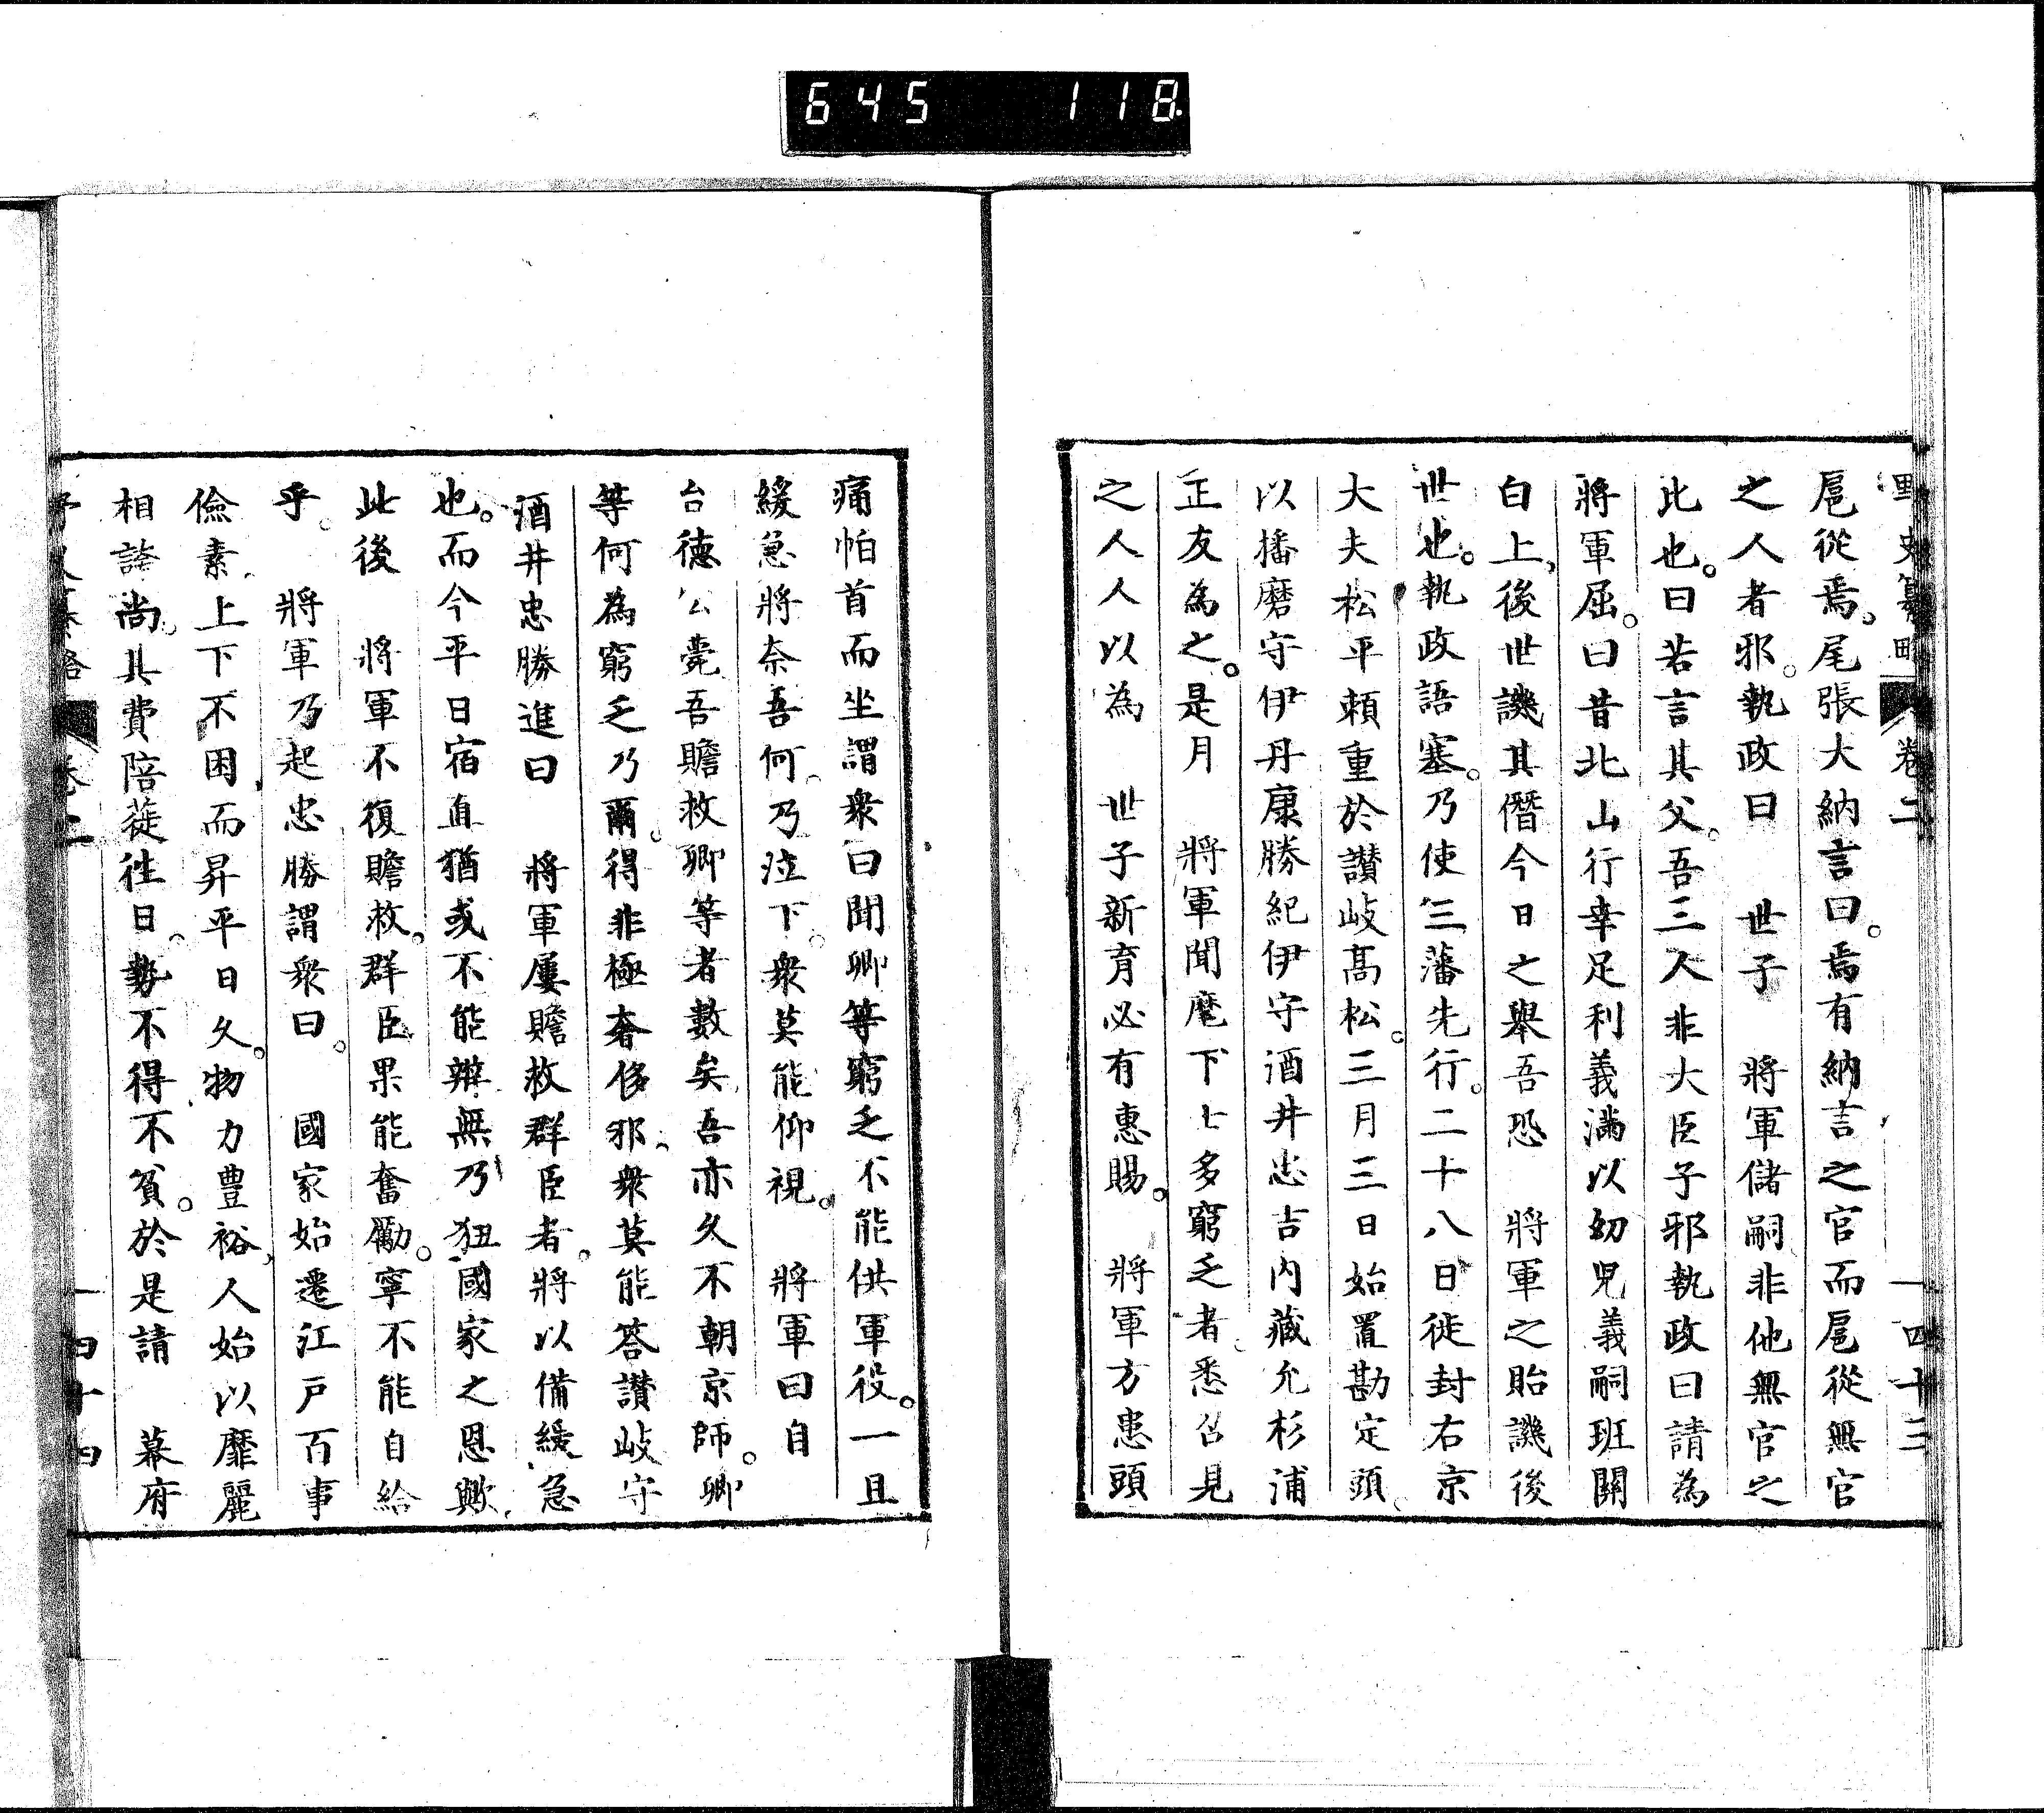 645 118
野史纂略 卷二 一四十三
扈從焉。尾張大納言曰。焉有納言之官而扈從無官
之人者邪。執政曰 世子 將軍儲嗣非他無官之
比也。曰若言其父。吾三人非大臣子邪執政曰請為
將軍屈。曰昔北山行幸足利義滿以幼児義嗣班關
白上、後世譏其僭今日之舉吾恐 將軍之貽譏後
世也。執政語塞。乃使三藩先行。二十八日徙封右京
大夫松平頼重於讃岐髙松。三月三日始置勘定頭。
以播磨守伊丹康勝紀伊守酒井忠吉内藏允杉浦
正友為之。是月 將軍聞麾下士多窮乏者。悉召見
之人人以為 世子新育必有惠賜。 將軍方患頭
痛帕首而坐謂衆曰聞卿等窮乏不能供軍役。一旦
緩急將奈吾何。乃泣下。衆莫能仰視。 將軍曰自
台德公薨吾贍救卿等者數矣吾亦久不朝京師。卿
等何為窮乏乃爾。得非極奢侈邪、衆莫能答讃岐守
酒井忠勝進曰 將軍屢贍救群臣者。將以備緩急
也。而今平日宿直猶或不能辨無乃狃國家之恩歟、
此後 將軍不復贍救。群臣果能奮勵。寧不能自給
乎。 將軍乃起忠勝謂衆曰。 國家始遷江戸百事
儉素、上下不困、而昇平日久。物力豊裕、人始以靡麗
相誇尚。其費陪蓰往日。勢不得不貧。於是請 幕府
野史纂略 卷二 一四十四